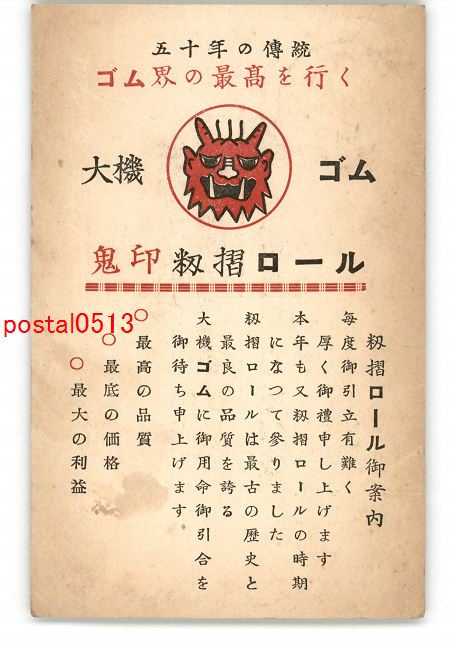 五十年の傳統
ゴム界の最高を行く
大機 ゴム
鬼印 籾摺ロール
籾摺ロール御案内
毎度御引立有難く
厚く御禮申し上げます
本年も又籾摺ロールの時期
になつて參りました
籾摺ロールは最古の歴史と
最良の品質を誇る
大機ゴムに御用命御引合を
御待ち申上げます
○最高の品質
○最底の価格
○最大の利益
postal0513